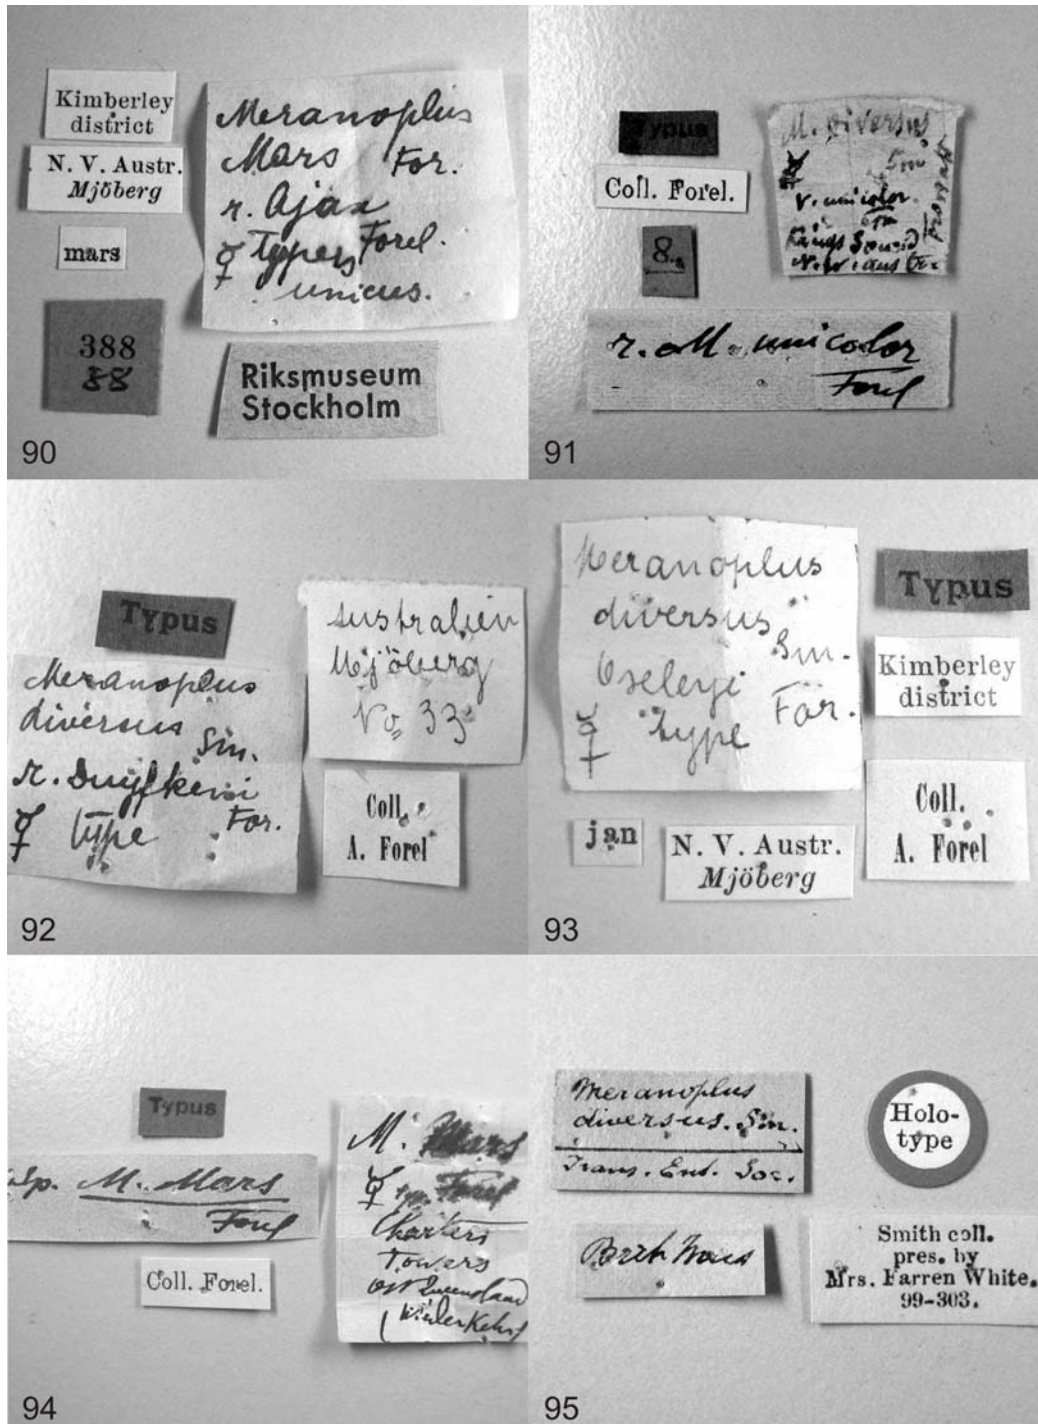 Kimberley
district
N. V. Austr.
Mjöberg
mars
388
88
Meranoplus
Mars For.
r. Ajax
☿ types Forel.
unicus.
Riksmuseum
Stockholm
90
Typus
Coll. Forel.
8.
M. diversus
☿ Sm
v. unicolor.
Kings Sound
N.W. austr.
r. M. unicolor
Forel
91
Typus
Meranoplus
diversus Sm.
r. Duyfkeni
☿ type For.
Australien
Mjöberg
No 33
Coll.
A. Forel
92
Meranoplus
diversus Sm.
Oxleyi
☿ type För.
Typus
Kimberley
district
jan
N. V. Austr.
Mjöberg
Coll.
A. Forel
93
Typus
Sp. M. Mars
Forel
Coll. Forel.
M. Mars
☿ typ. Forel
Charters
Towers
Ost Queensland
94
Meranoplus
diversus. Sm.
Trans. Ent. Soc.
Holo-
type
Smith coll.
pres. by
Mrs. Farren White.
99-303.
95